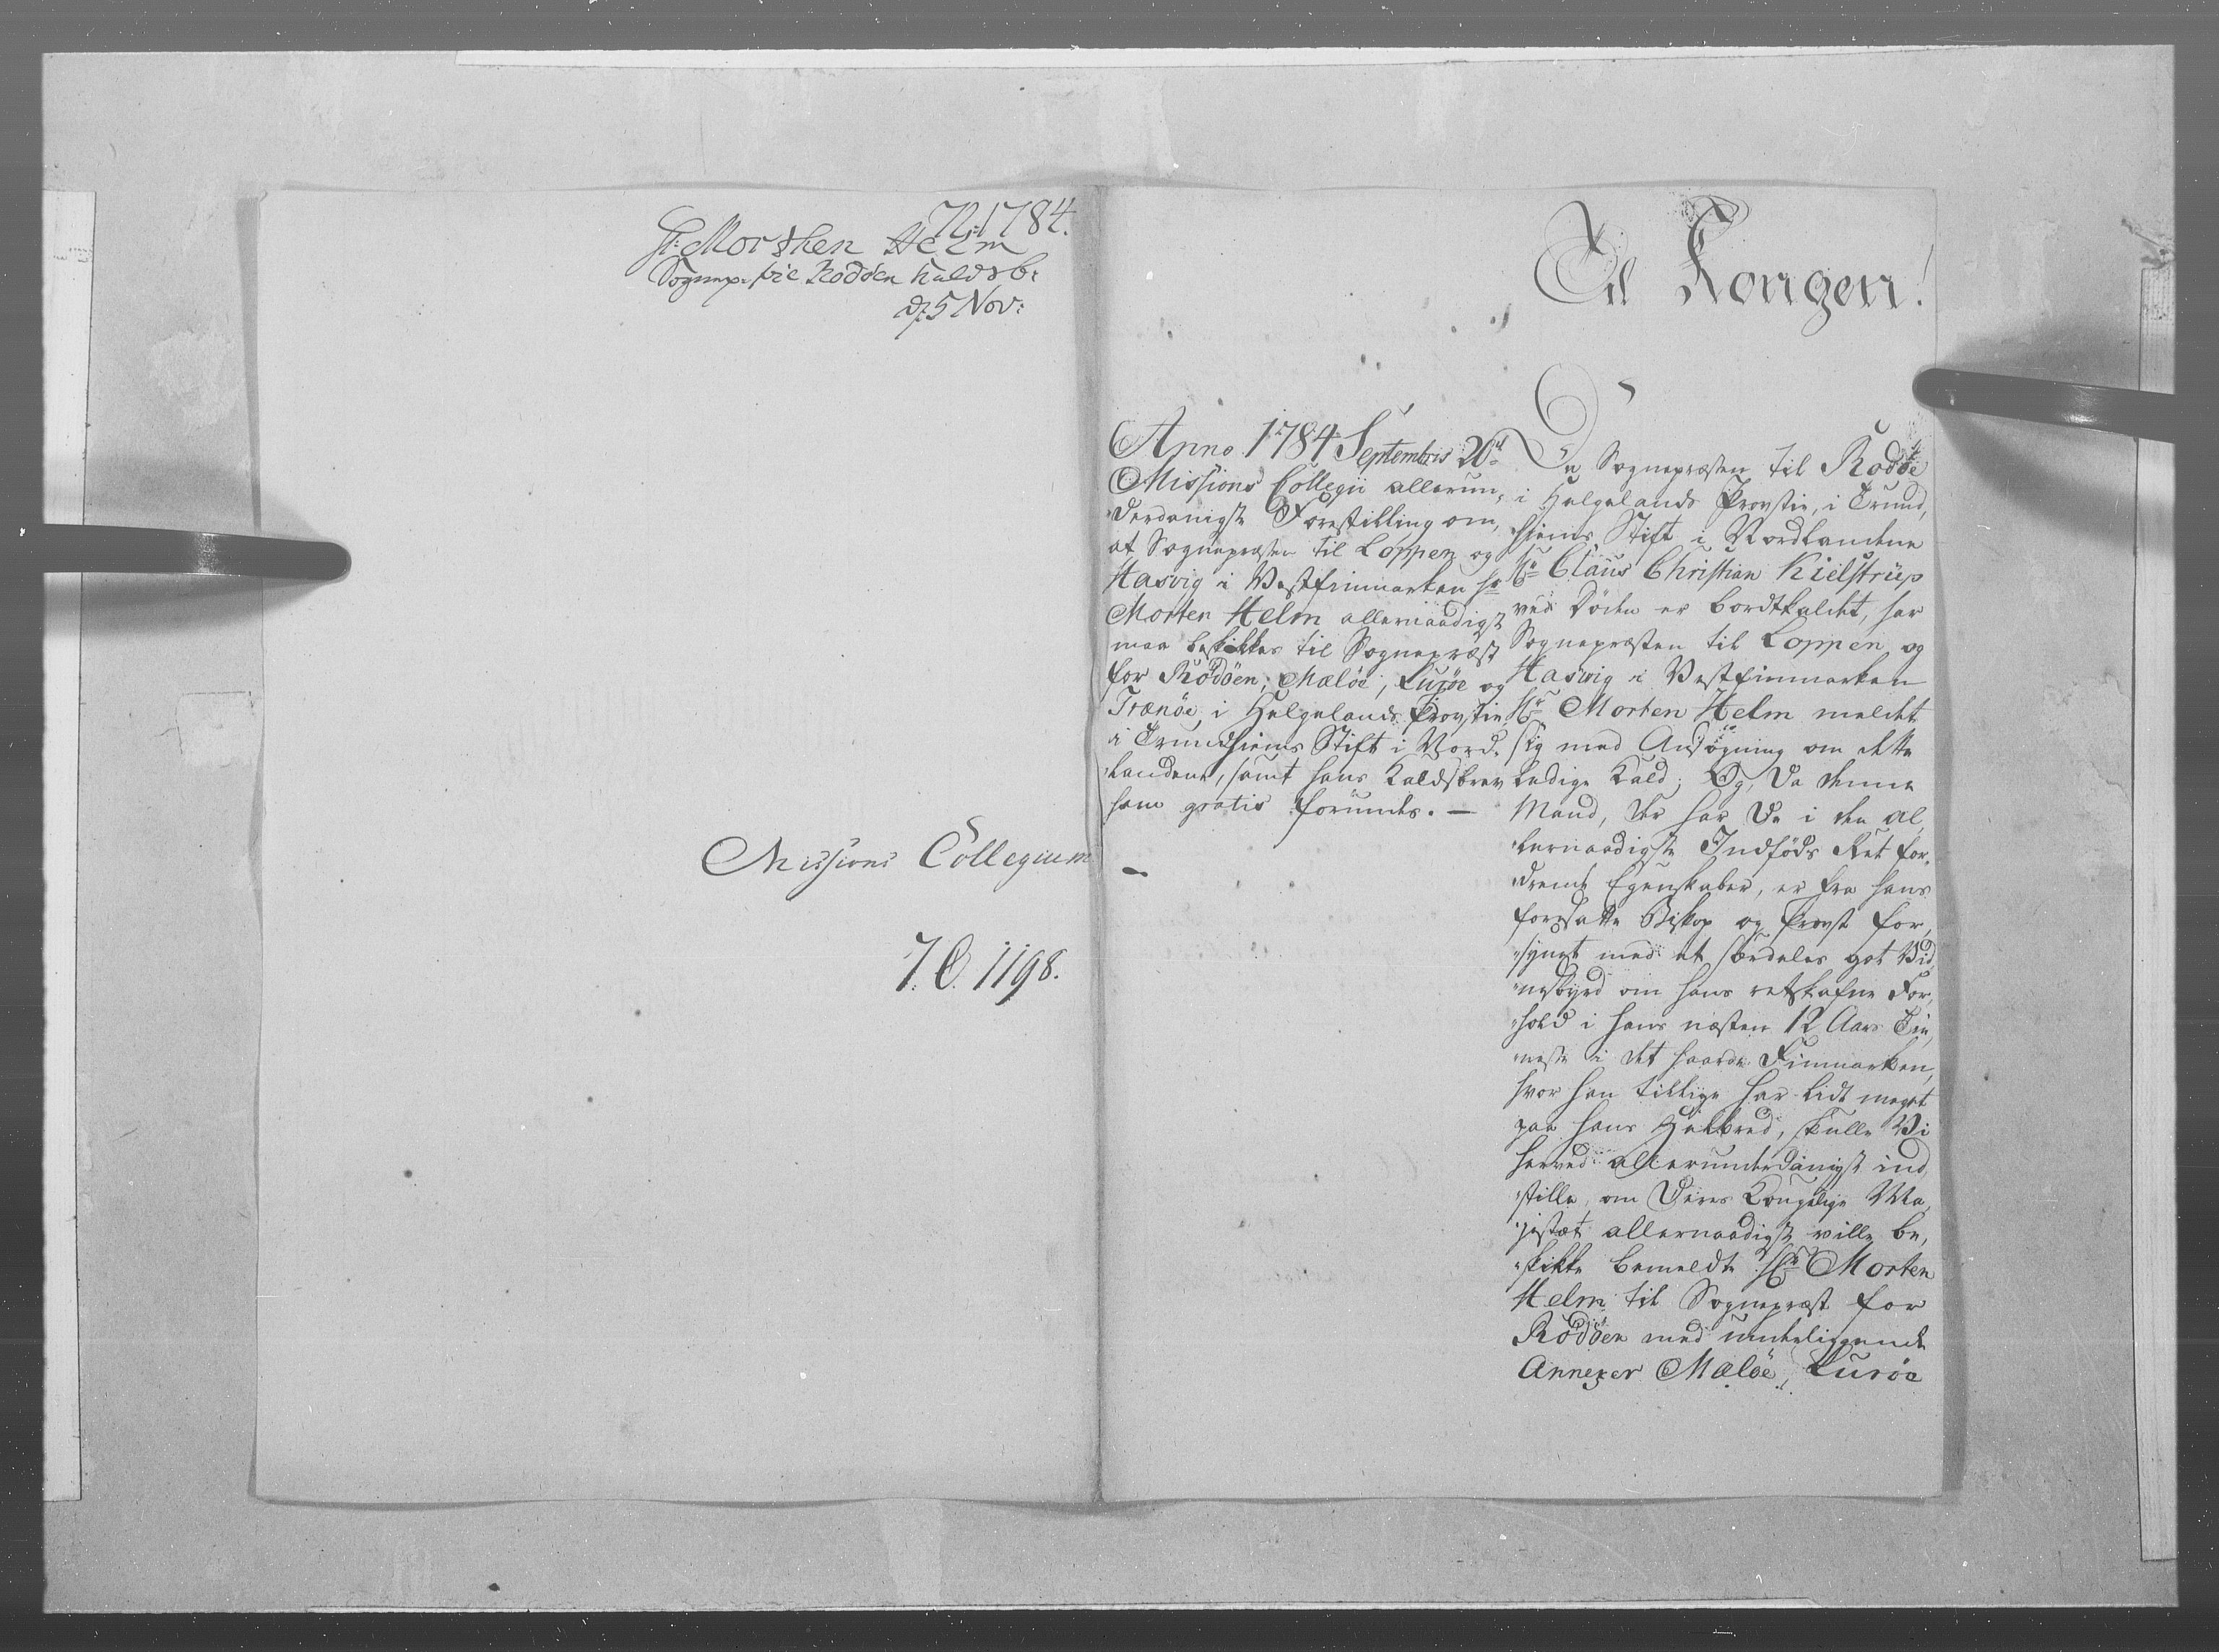 72. 1784.
Hr: Morthen Helm
Sognep: til Rødøen Kaldsb:
d: 5 Nov:
Missions Collegium
7. C. 1198.
Til Kongen!
Anno 1784 Septembris 20d
Missions Collegii allerun-
derdanigste Forestilling om,
at Sognepræsten til Loppen og
Hasvig i Vestfinmarken Hr
Morten Helm allernaadigst
maa beskikkes til Sognepræst
for Rödöen, Mælöe, Luröe og
Trænöe i Helgelands Provstie
i Trundhiems Stift i Nord-
landene, samt hans Kaldsbrev
ham gratis forundes. —
Da Sognepræsten til Rodöe
i Helgelands Provstie, i Trund,
hiems Stift i Nordlandene
Hr Claus Christian Kielstrup
ved Döden er bortkaldet, har
Sognepræsten til Loppen og
Hasvig i Vestfinmarken
Hr Morten Helm meldet
sig med Ansögning om dette
ledige Kald; Og, da denne
Mand, der har de i den al,
lernaadigste Indföds Ret for,
drende Egenskaber, er fra hans
foresatte Biskop og Provst for,
synet med et særdeles got Vid,
nesbyrd om hans retskafne For,
hold i hans næsten 12 Aars Tie,
neste i det haarde Finmarken,
hvor han tillige har lidt meget
paa hans Helbred, skulle Vi
herved allerunderdanigst ind,
stille, om Deres Kongelige Ma,
jestæt allernaadigst ville be,
skikke bemeldte Hr Morten
Helm til Sognepræst for
Rödöen med underliggende
Annexer Mælöe, Luröe